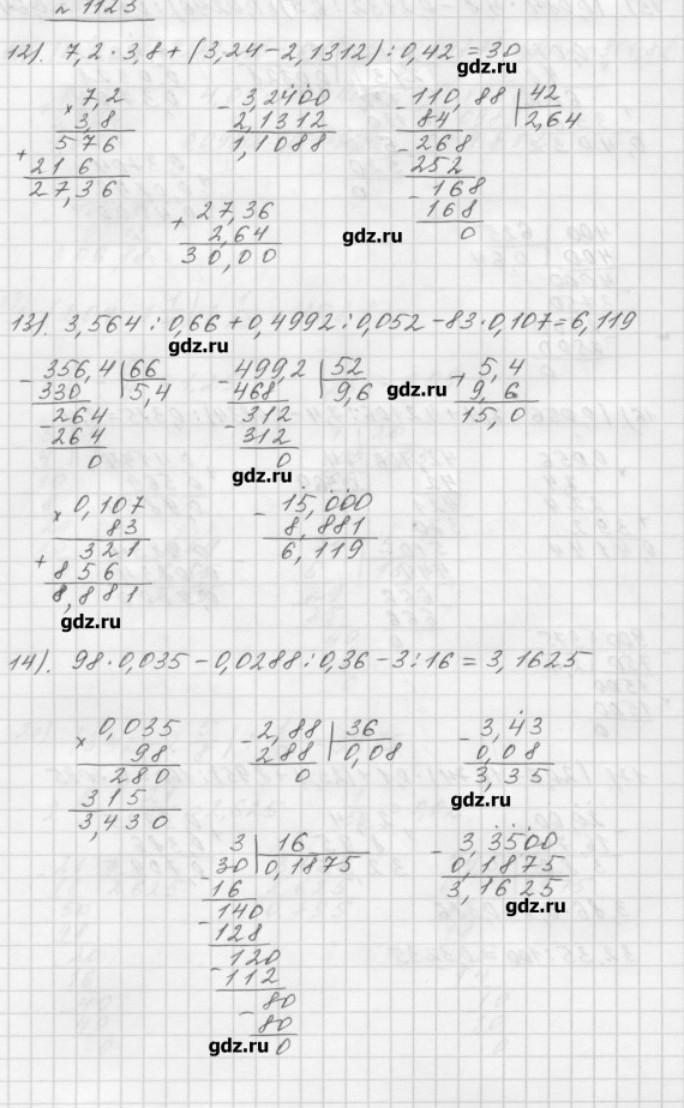 № 1123
12). 7,2 · 3,8 + (3,24 - 2,1312) : 0,42 = 30
gdz.ru
× 7,2
3,8
+ 576
216
27,36
- 3,2400
2,1312
1,1088
- 110,88 | 42
84 | 2,64
- 268
252
- 168
168
0
+ 27,36
2,64
30,00
gdz.ru
13). 3,564 : 0,66 + 0,4992 : 0,052 - 83 · 0,107 = 6,119
gdz.ru
- 356,4 | 66
330 | 5,4
- 264
264
0
- 499,2 | 52
468 | 9,6
- 312
312
0
gdz.ru
+ 5,4
9,6
15,0
gdz.ru
× 0,107
83
+ 321
856
8,881
gdz.ru
- 15,000
8,881
6,119
14). 98 · 0,035 - 0,0288 : 0,36 - 3 : 16 = 3,1625
× 0,035
98
280
315
3,430
- 2,88 | 36
288 | 0,08
0
- 3,43
0,08
3,35
gdz.ru
3 | 16
- 30 | 0,1875
16
- 140
128
- 120
112
- 80
80
0
gdz.ru
- 3,3500
0,1875
3,1625
gdz.ru